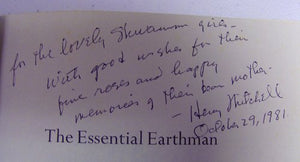 for the lovely girls -
With good wishes for their
fine roses and happy
memories of their dear mother -
- Henry Mitchell
October 29, 1981
The Essential Earthman